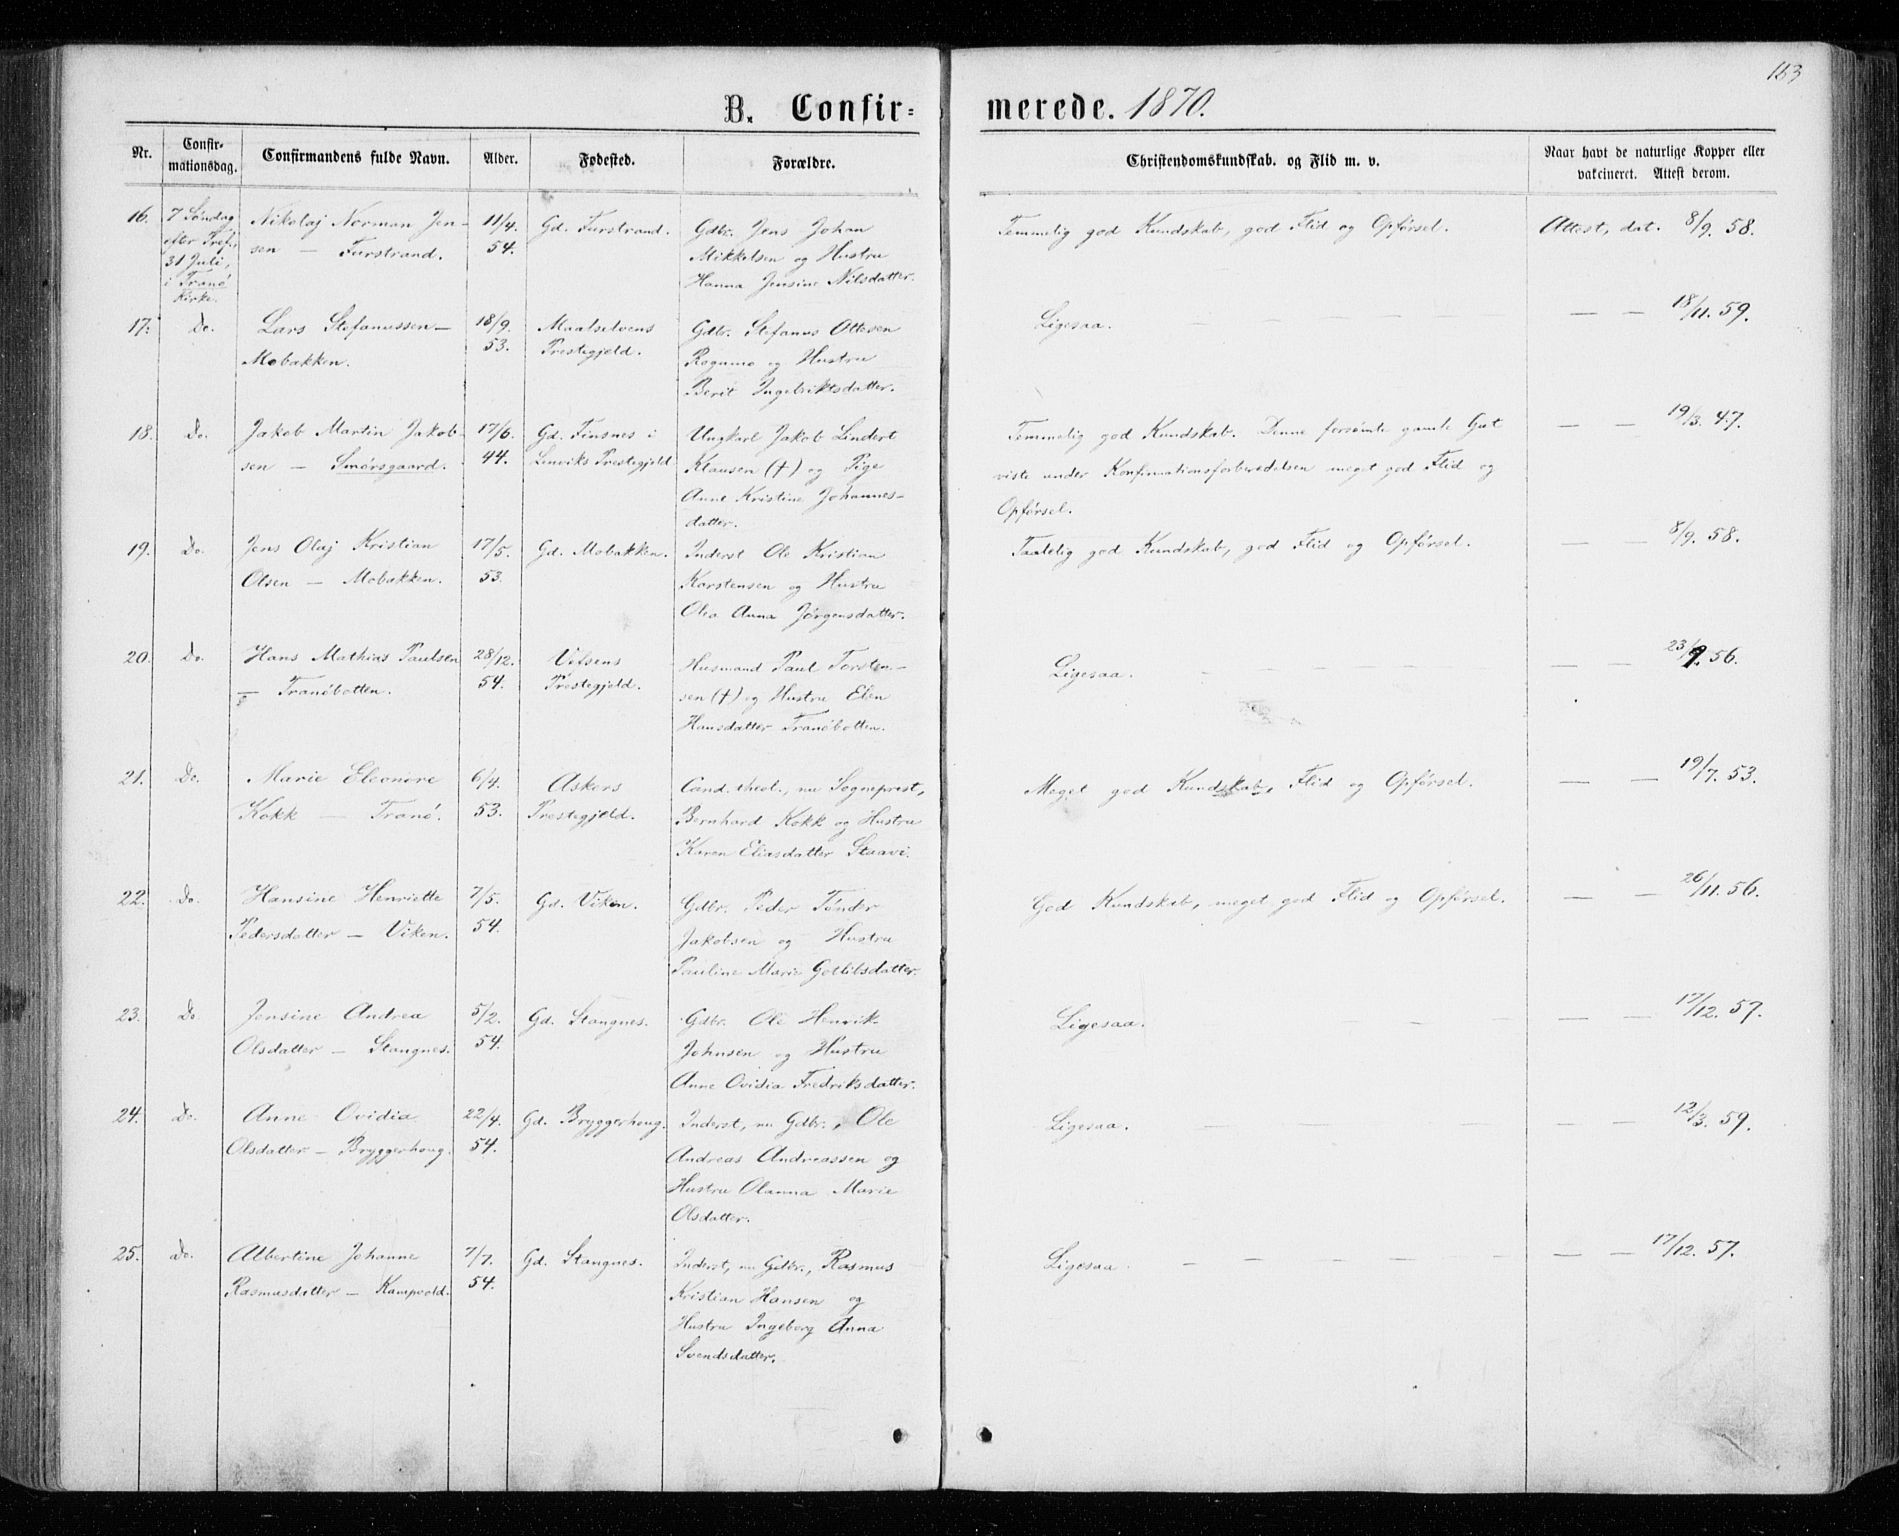 153
B. Confir= merede. 1870.
Nr.
Confir-
mationsdag.
Confirmandens fulde Navn.
Alder.
Fødested.
Forældre.
Christendomskundskab. og Flid m. v.
Naar havt de naturlige Kopper eller
vakcineret. Attest derom.
16. 7 Søndag Nikolaj Norman Jen- 11/4 Gd. Furstrand. Gdbr. Jens Johan Temmelig god Kundskab, god Flid og Opførsel. Attest, dat. 8/9. 58.
efter Tref. sen — Furstrand. 54. Mikkelsen og Hustru
31 Juli, Hanna Jensine Nilsdatter.
i Tranø
Kirke.
17. Do. Lars Stefanussen — 18/9. Maalselvens Gdbr. Stefanus Ottesen Ligesaa. — — 18/11. 59.
Mobakken. 53. Prestegjeld. Rognmo og Hustru
Berit Ingebriktsdatter.
18. Do. Jakob Martin Jakob- 17/6. Gd. Finsnes i Ungkarl Jakob Lindert Temmelig god Kundskab. Denne forsømte gamle Gut — — 19/3. 47.
sen — Smörsgaard. 44. Lenviks Prestegjeld Klausen (†) og Pige viste under Konfirmationsforberedelsen meget god Flid og
Anne Kristine Johannes- Opførsel.
datter.
19. Do. Jens Olaj Kristian 17/5. Gd. Mobakken. Inderst Ole Kristian Taalelig god Kundskab, god Flid og Opførsel. — — 8/9. 58.
Olsen — Mobakken. 53. Karstensen og Hustru
Olea Anna Jørgensdatter.
20. Do. Hans Mathias Paulsen 28/12. Vefsens Husmand Paul Torsten- Ligesaa. — — 23/9. 56.
— Tranøbotten. 54. Prestegjeld. sen (†) og Hustru Elen
Hansdatter Tranøbotten.
21. Do. Marie Eleonore 6/4. Askers Cand. theol., nu Sogneprest, Meget god Kundskab, Flid og Opførsel. — — 19/7. 53.
Kokk — Tranø. 53. Prestegjeld. Bernhard Kokk og Hustru
Karen Eliasdatter Staavi.
22. Do. Hansine Henriette 7/5. Gd. Viken. Gdbr. Peder Tønder God Kundskab, meget god Flid og Opførsel. — — 26/11. 56.
Pedersdatter — Viken. 54. Jakobsen og Hustru
Pauline Marie Gotlibsdatter.
23. Do. Jensine Andrea 5/2. Gd. Stangnes. Gdbr. Ole Henrik Ligesaa. — — 17/12. 57.
Olsdatter — Stangnes. 54. Johnsen og Hustru
Anne Ovidia Fredriksdatter.
24. Do. Anne Ovidia 22/4. Gd. Bryggerhoug. Inderst, nu Gdbr., Ole Ligesaa. — — 12/3. 59.
Olsdatter — Bryggerhoug. 54. Andreas Andreassen og
Hustru Olanna Marie
Olsdatter.
25. Do. Albertine Johanne 7/7. Gd. Stangnes. Inderst, nu Gdbr., Rasmus Ligesaa. — — 17/12. 57.
Rasmusdatter — Kampvold. 54. Kristian Hansen og
Hustru Ingeborg Anna
Svendsdatter.